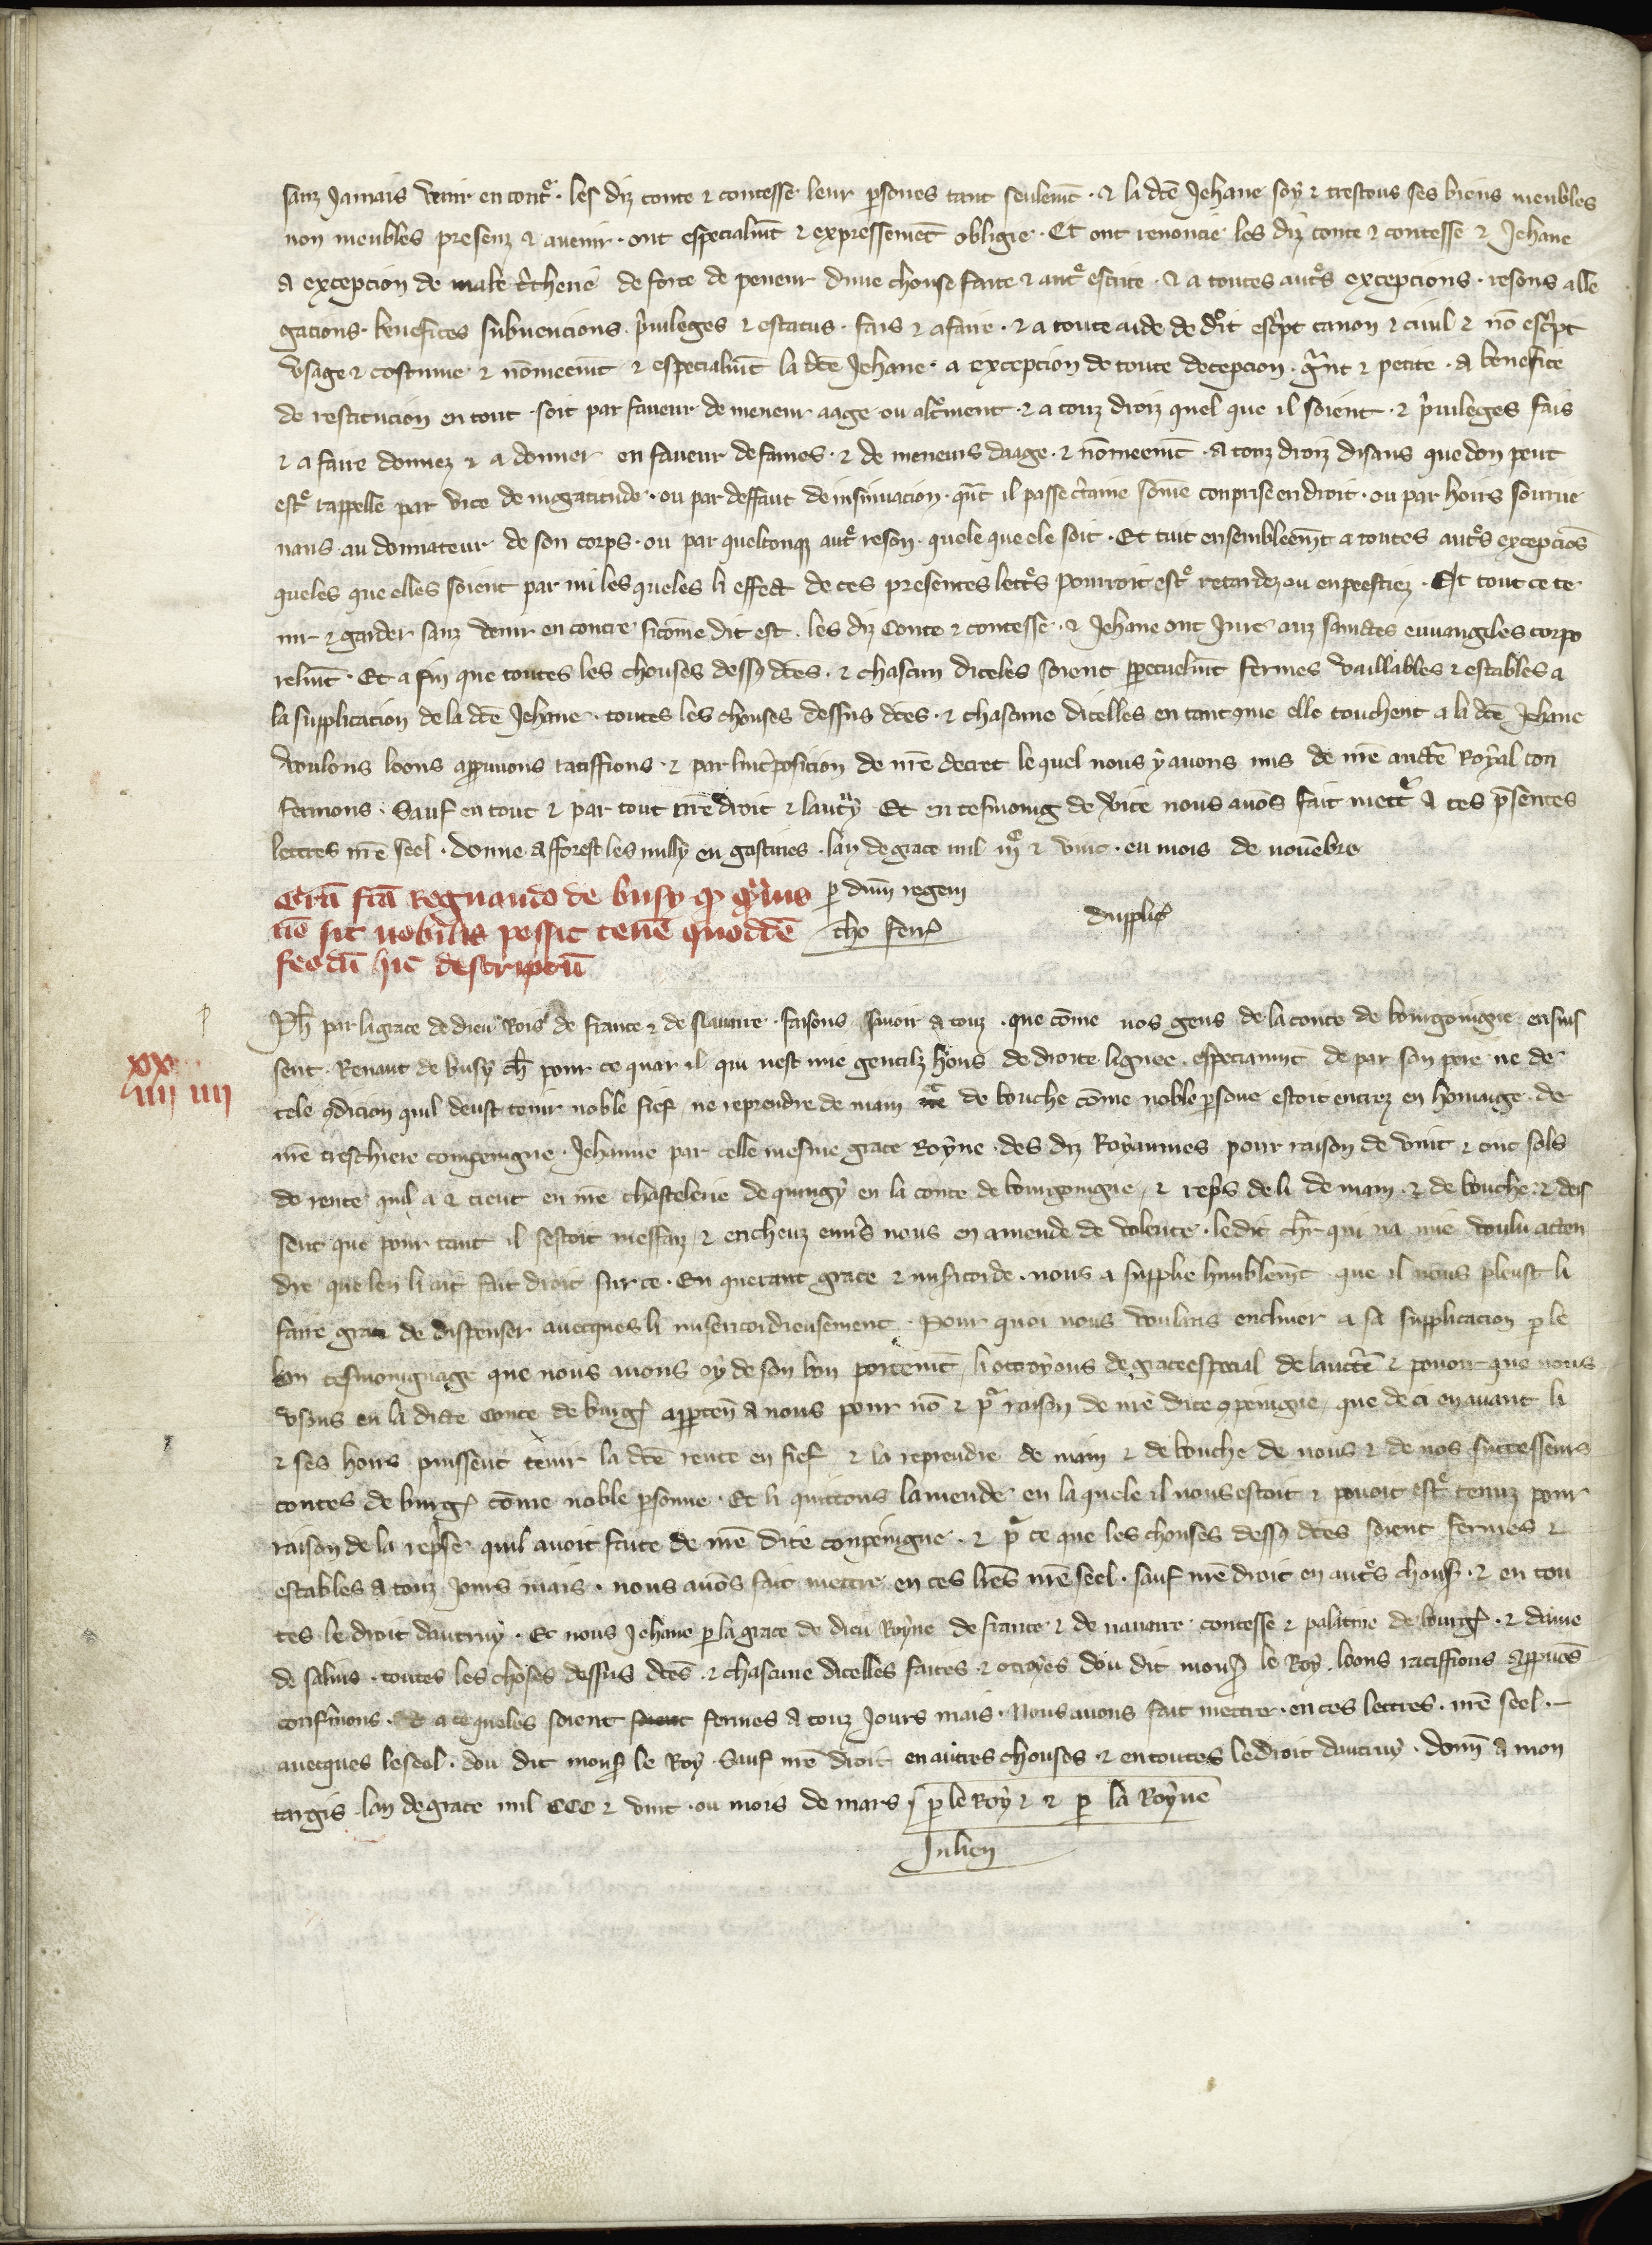 sanz Jamais venir en contᵉ · les diz conte ⁊ contesse leur ꝑsones tant seulemᷠt · ⁊ la dc̄e Jehane soy ⁊ trestous ses biens meubles
non meubles presenz ⁊ auenir · ont especialmᷠt ⁊ expressemēt obligie · Et ont renoncie les diz conte ⁊ contesse ⁊ Jehane
A excepcion de male t̾cherie de force de peneur dune chouse faite ⁊ autᵉ escrite · ⁊ a toutes autᵉs excepcions · resons alle
gacions · benefices subuencions · p̾uileges ⁊ estatus · fais ⁊ afaire · ⁊ a toute aide de droit esc̾pt canon ⁊ ciuil ⁊ nō esc̾pt
vsage ⁊ costume ⁊ nōmeemᷠt ⁊ especialmᷠt la dc̄e Jehane · a excepcion de toute decepcion · gᷓnt ⁊ petite · a benefice
de restitucion en tout · soit par faueur de meneur aage ou alt̾ment · ⁊ a touz droiz quel que il soient · ⁊ p̾uileges fais
⁊ a faire donnez ⁊ a donner en faueur de fames · ⁊ de meneurs daage · ⁊ nōmeemᷠt · a touz droiz disans que don peut
estᵉ rappelle par vice de ingratitude · ou par deffaut de insinuacion · qᷓnt il passe c̾taine sōme conprise en droit · ou par hoirs sourue
nans au donnateur de son corps · ou par quelconqꝫ autᵉ reson · quele que ele soit · Et tuit ensembleemᷠt a toutes autᵉs excepciōs
queles que elles soient par mi les queles li effect de ces presentes lettᵉs pourroit estᵉ retardez ou enpeeschiez · Et tout ce te
nir ⁊ garder sanz venir en contre sicōme dit est · les diz Conte ⁊ contesse · ⁊ Jehane ont Jure auz sainctes euuangeles corpo
relmᷠt · Et a fin que toutes les chouses dessꝰ dc̄es · ⁊ chascun diceles soient ꝑpetuelmᷠt fermes vaillables ⁊ estables a
la supplicacion de la dc̄e Jehane · toutes les chouses dessus dc̄es · ⁊ chascune dicelles en tant que elle touchent a la dc̄e Jehane
voulons loons approuuons ratiffions · ⁊ par lint̾posicion de nr̄e decret le quel nous y auons mis de nr̄e auctē Royal con
fermons · Sauf en tout ⁊ par tout nr̄e droit ⁊ lautruy Et en tesmoing de vite nous auōs fait mettᵉ A ces p̄sentes
lettres nr̄e seel · Donne Afforest les milly en gastines · lan de grace mil iijᶜ ⁊ vint · eu mois de nouēbre
Grā fc̄ā Regnaudo de busy ꝙ quᷓuis ꝑ dn̄m regem
nō sit nobilis possit tenē quoddē tho ferr̾ duppliᶜ
feodū hic descriptū
Ph̄ par la grace de dieu Rois de france ⁊ de Nauarre · faisons sauoir a touz · que cōme nos gens de la conte de bourgoingne ensuis
sent · Renaut de busy ch̄r pour ce quar il qui nest mie gentilz hons de droite lignee · especiaumᷠt de par son pere ne de
xx
iiij iiij
tele ꝯdicion quil deust tenir noble fief, ne reprendre de main ⁊ de bouche cōme noble ꝑsone estoit entrez en homage de
nr̄e treschiere compeingne · Jehanne par celle mesme grace Royne · des diz Royaumes pour raison de vint ⁊ cinc sols
de rente quil a ⁊ tient en nr̄e chastelerie de quingy en la conte de bourgoingne, ⁊ rep̾s de li de main ⁊ de bouche · ⁊ deis
sent que pour tant il sestoit meffaiz, ⁊ encheuz enu̾s nous en amende de volente · ledit ch̄r qui na mie voulu atten
dre que len li ait fait droit sur ce · En querant grace ⁊ mis̾icorde · nous a supplie humblemᷠt que il nous pleust li
faire grace de dispenser auecques li misericordieusement · Pour quoi nous voulans encliner a sa supplicacion ꝑ le
bon tesmoingnage que nous auons oy de son bon portemᷠt, li octroyons de grace especial de lauctē ⁊ pouoir que nous
vsons en la dicte Conte de burg̾ apparten̄ a nous pour nō ⁊ pᷓ raison de nr̄e dite ꝯpeingne, que de ci en auant li
⁊ ses hoirs puissent tenir la dc̄e rente en fief ⁊ la reprendre de main ⁊ de bouche de nous ⁊ de nos successeurs
contes de burg̾ cōme noble ꝑsonne · Et li quittons lamende en la quele il nous estoit ⁊ pouoit estᵉ tenuz pour
raison de la rep̾se quil auoit faite de nr̄e dite conpeingne · ⁊ pᷓ ce que les chouses dessꝰ dc̄es soient fermes ⁊
estables a touz Jours mais · nous auōs fait mettre en ces lr̄es nr̄e seel · sauf nr̄e droit en autᵉs chouses · ⁊ en tou
tes le droit dautruy · Et nous Jehane ꝑ la grace de dieu Royne de france ⁊ de nauarre contesse ⁊ palatine de bourg̾ · ⁊ dame
de salins · toutes les choses dessus dc̄es · ⁊ chascune dicelles faites ⁊ otroyes dou dit mons̾ le Roy · loons ratiffions approuōs
conf̾mons · Et a ce queles soient soient fermes a touz Jours mais · Nous auons fait mettre · en ces lettres · nr̄e seel · –
auecques le seel · dou dit mons̾ le Roy · Sauf nr̄e droit en autres chouses · ⁊ en toutes le droit dautruy · Don̄n a mon
targis · lan de grace mil CCC ⁊ vint · ou mois de mars · ꝑ le Roy ⁊ ꝑ la Royne
Julien